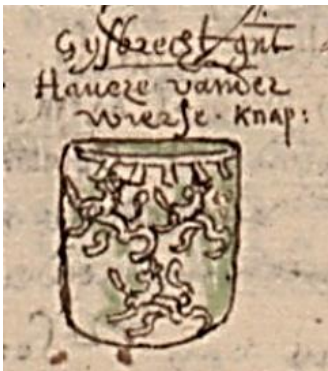 Gÿsbrecht gnt
Hacze vander
wierse. knap: